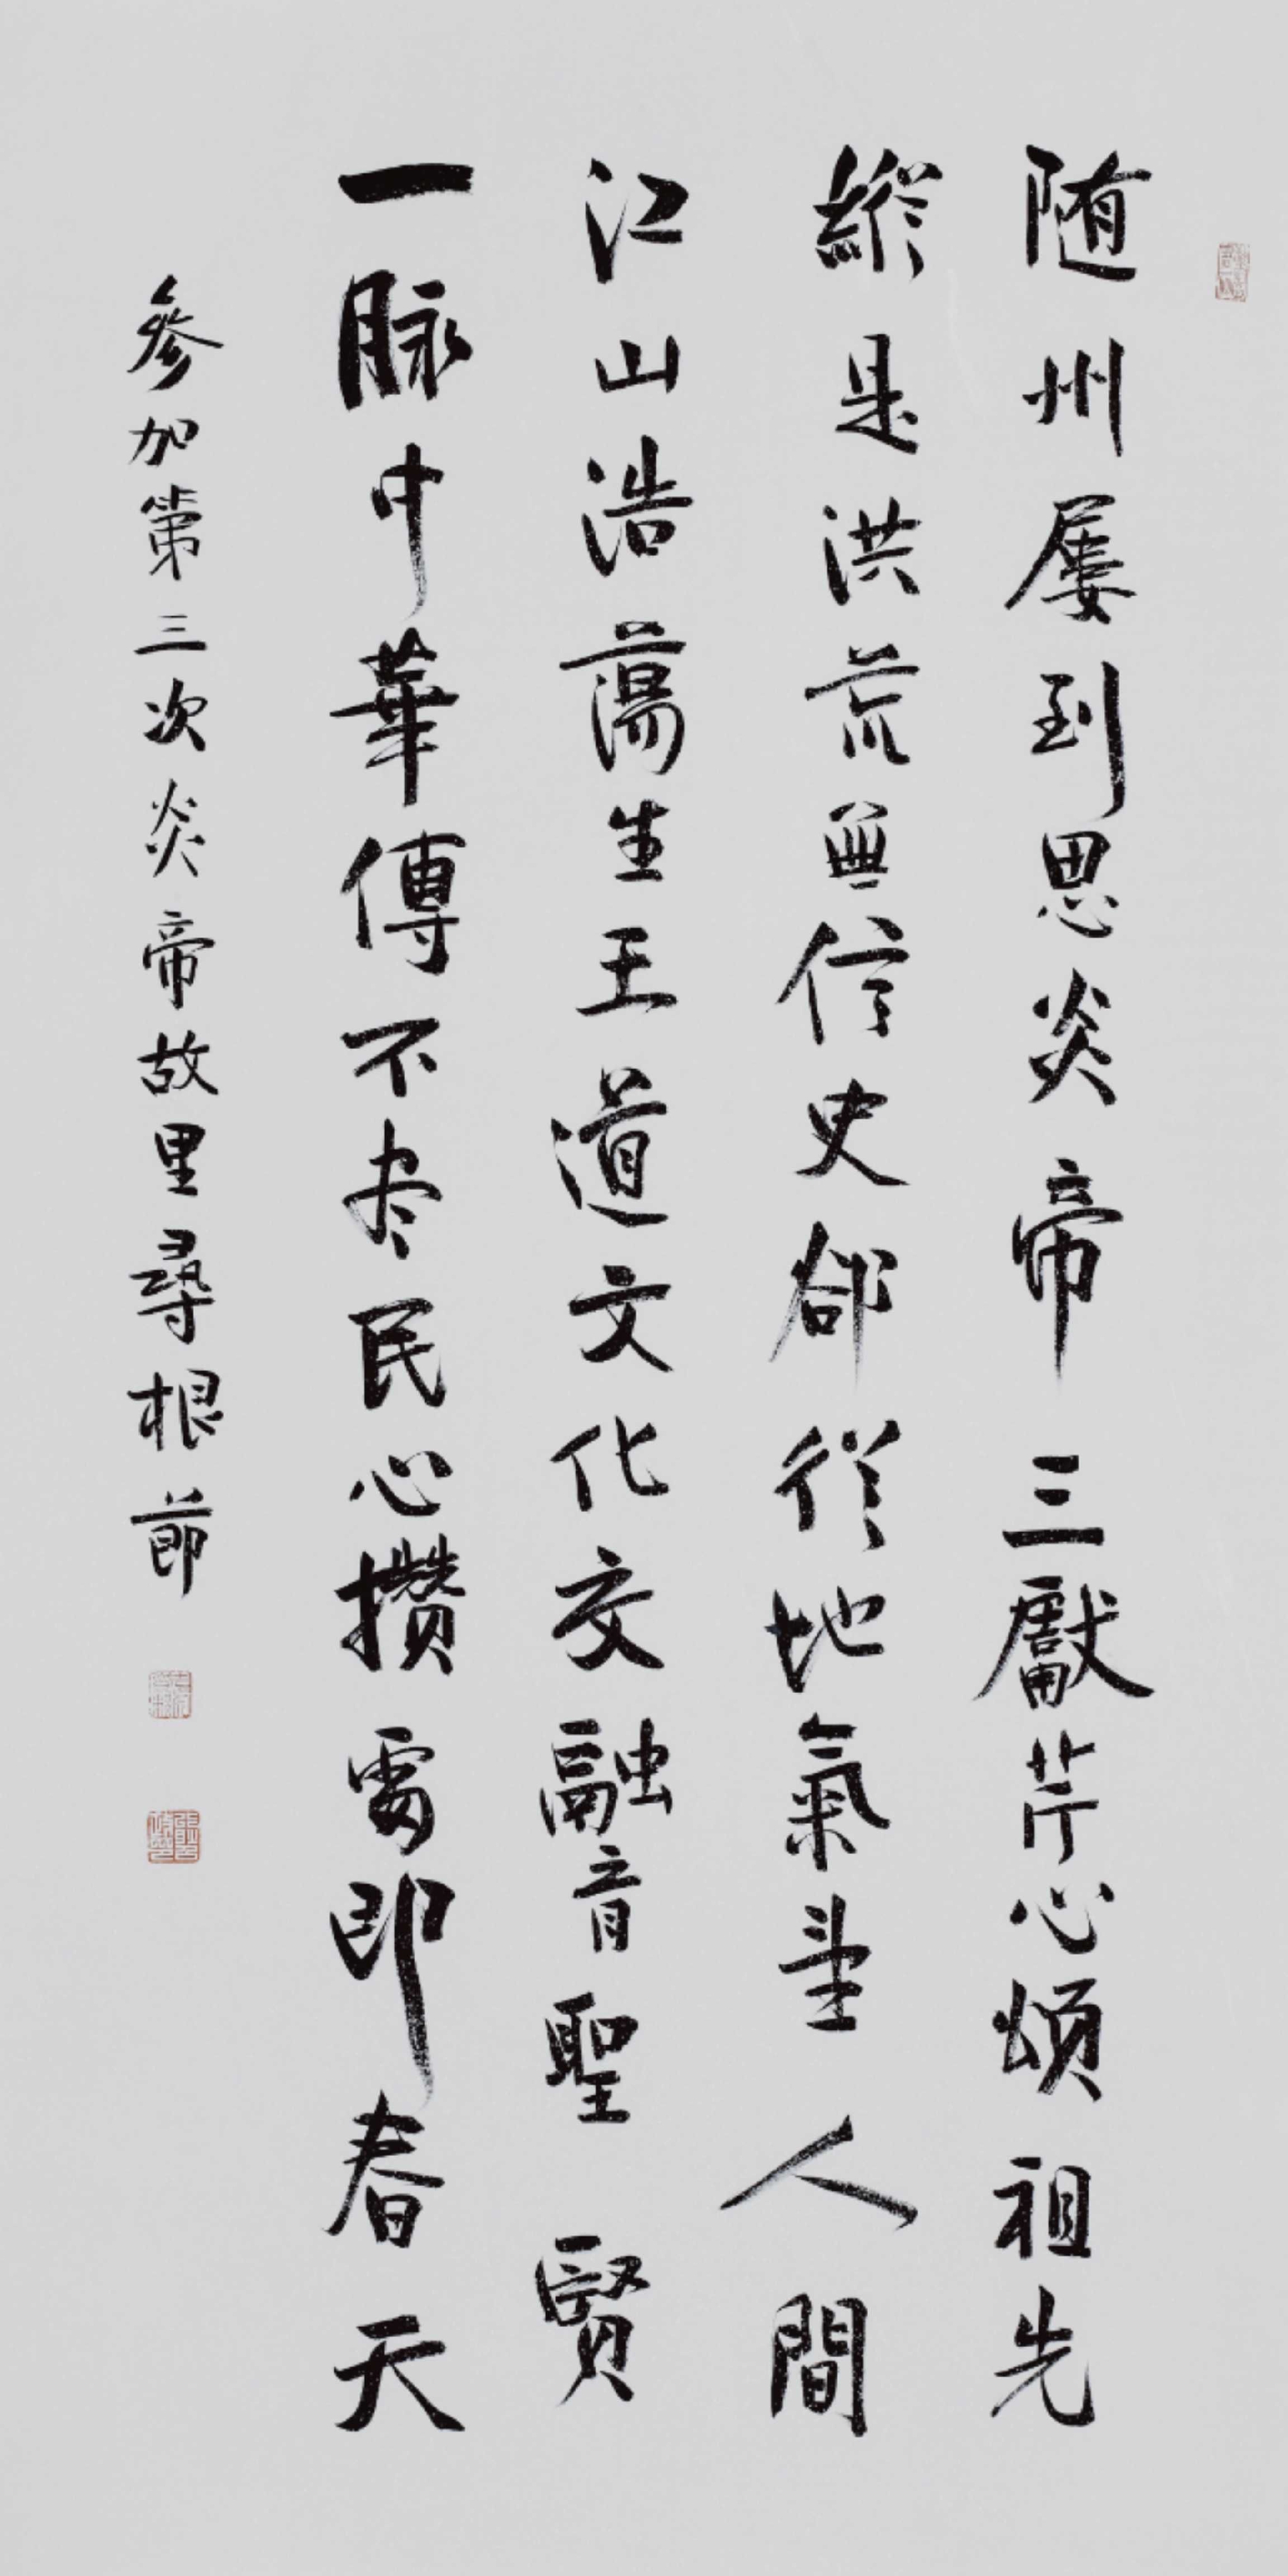 随州屡到思炎帝三獻芹心頌祖先
縱是洪荒無信史卻從地氣望人間
江山浩蕩生王道文化交融育聖賢
一脉中華傳不尽民心攢處即春天
參加第三次炎帝故里尋根節